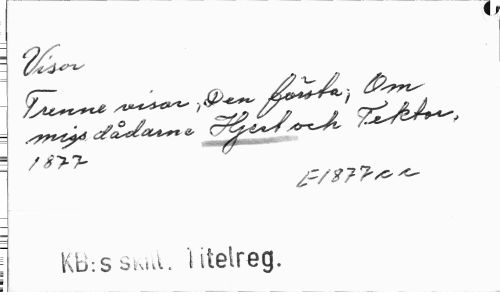 Visor
Trenne visor, Den första; Om
migsdådarne Hjert och Tektor.
1877
E1877 c c
KB:s skill. Titelreg.